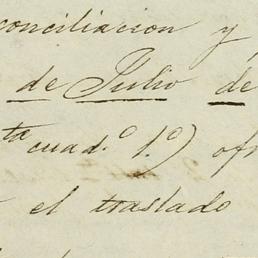 conciliacion y
de Julio de
ta cuad.º 1.º) ofr
el traslado